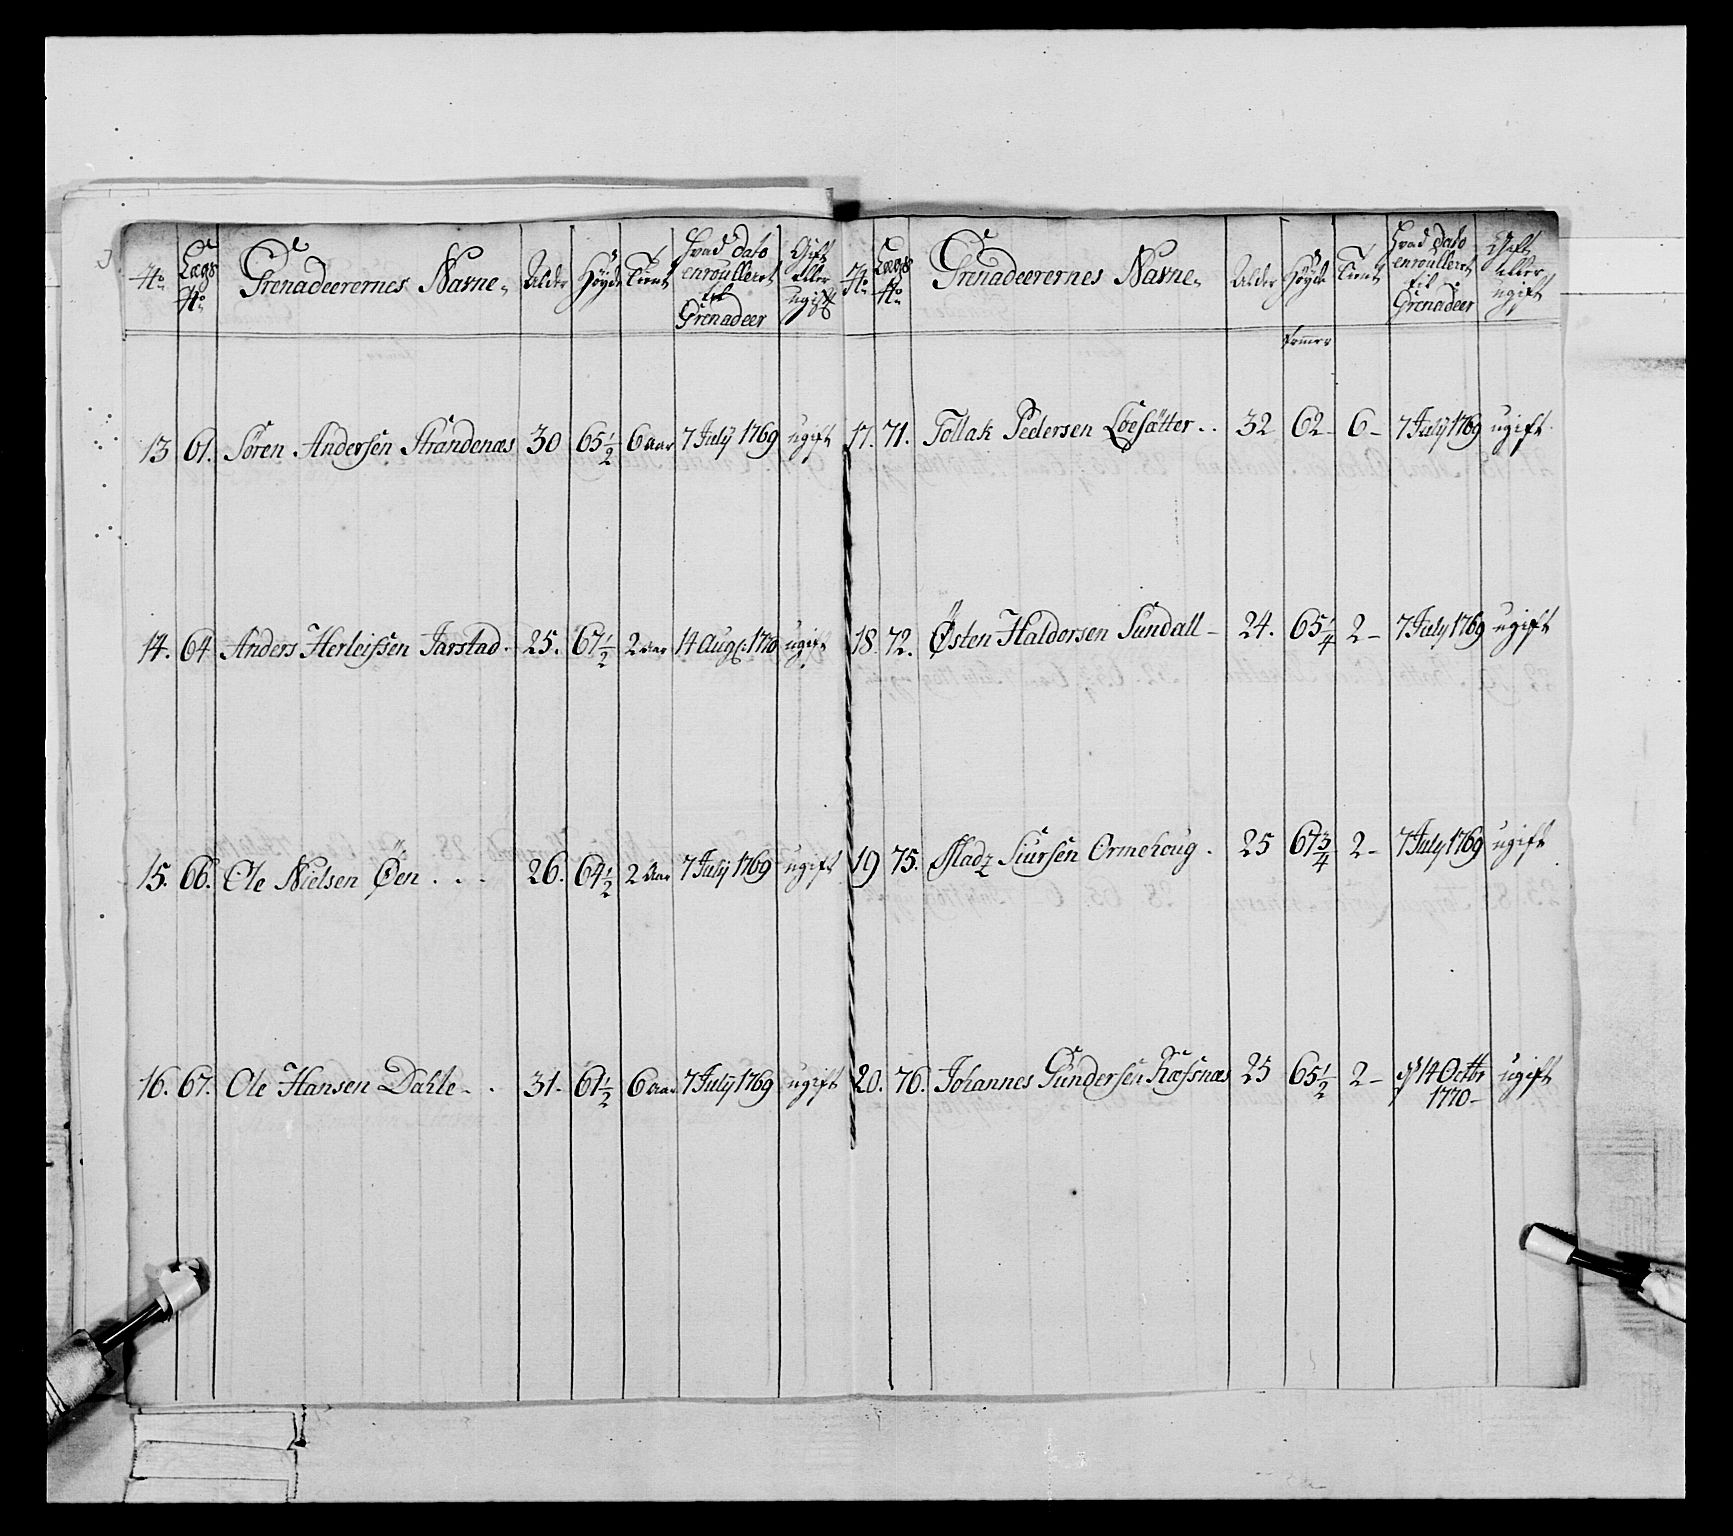 No
Lægs No
Grenadeerernes Navne
Alder
Höyde
Tient
Hvad dato enroulleret til Grenadeer
Gift eller ugift
13 61. Sören Andersen Strandenæs 30 65 1/2 6 aar 7 July 1769 ugift
14. 64 Anders Herleifsen Jarstad. 25. 67 1/2 2 aar 14 Aug: 1770 ugift
15. 66. Ole Nielsen Öen . . . 26. 64 1/2 2 Aar 7 July 1769 ugift
16. 67. Ole Hansen Dahle - . 31. 61 1/2 6 aar 7 July 1769 ugift
No
Lægs No
Grenadeerernes Navne
Alder
Höyde
Tient
Hvad dato enroulleret til Grenadeer
Gift eller ugift
17. 71. Tollak Pedersen Löesätter . . 32 62 - 6 - 7 July 1769 ugift
18. 72. Østen Haldorsen Sundall - 24. 65 1/4 2 - 7 July 1769 ugift
19 75. Madz Siursen Ormehoug . 25 67 3/4 2 - 7 July 1769 ugift
20. 76. Johannes Gundersen Ræfsnæs 25 65 1/2 2 - d 14 Octbr 1770 - ugift